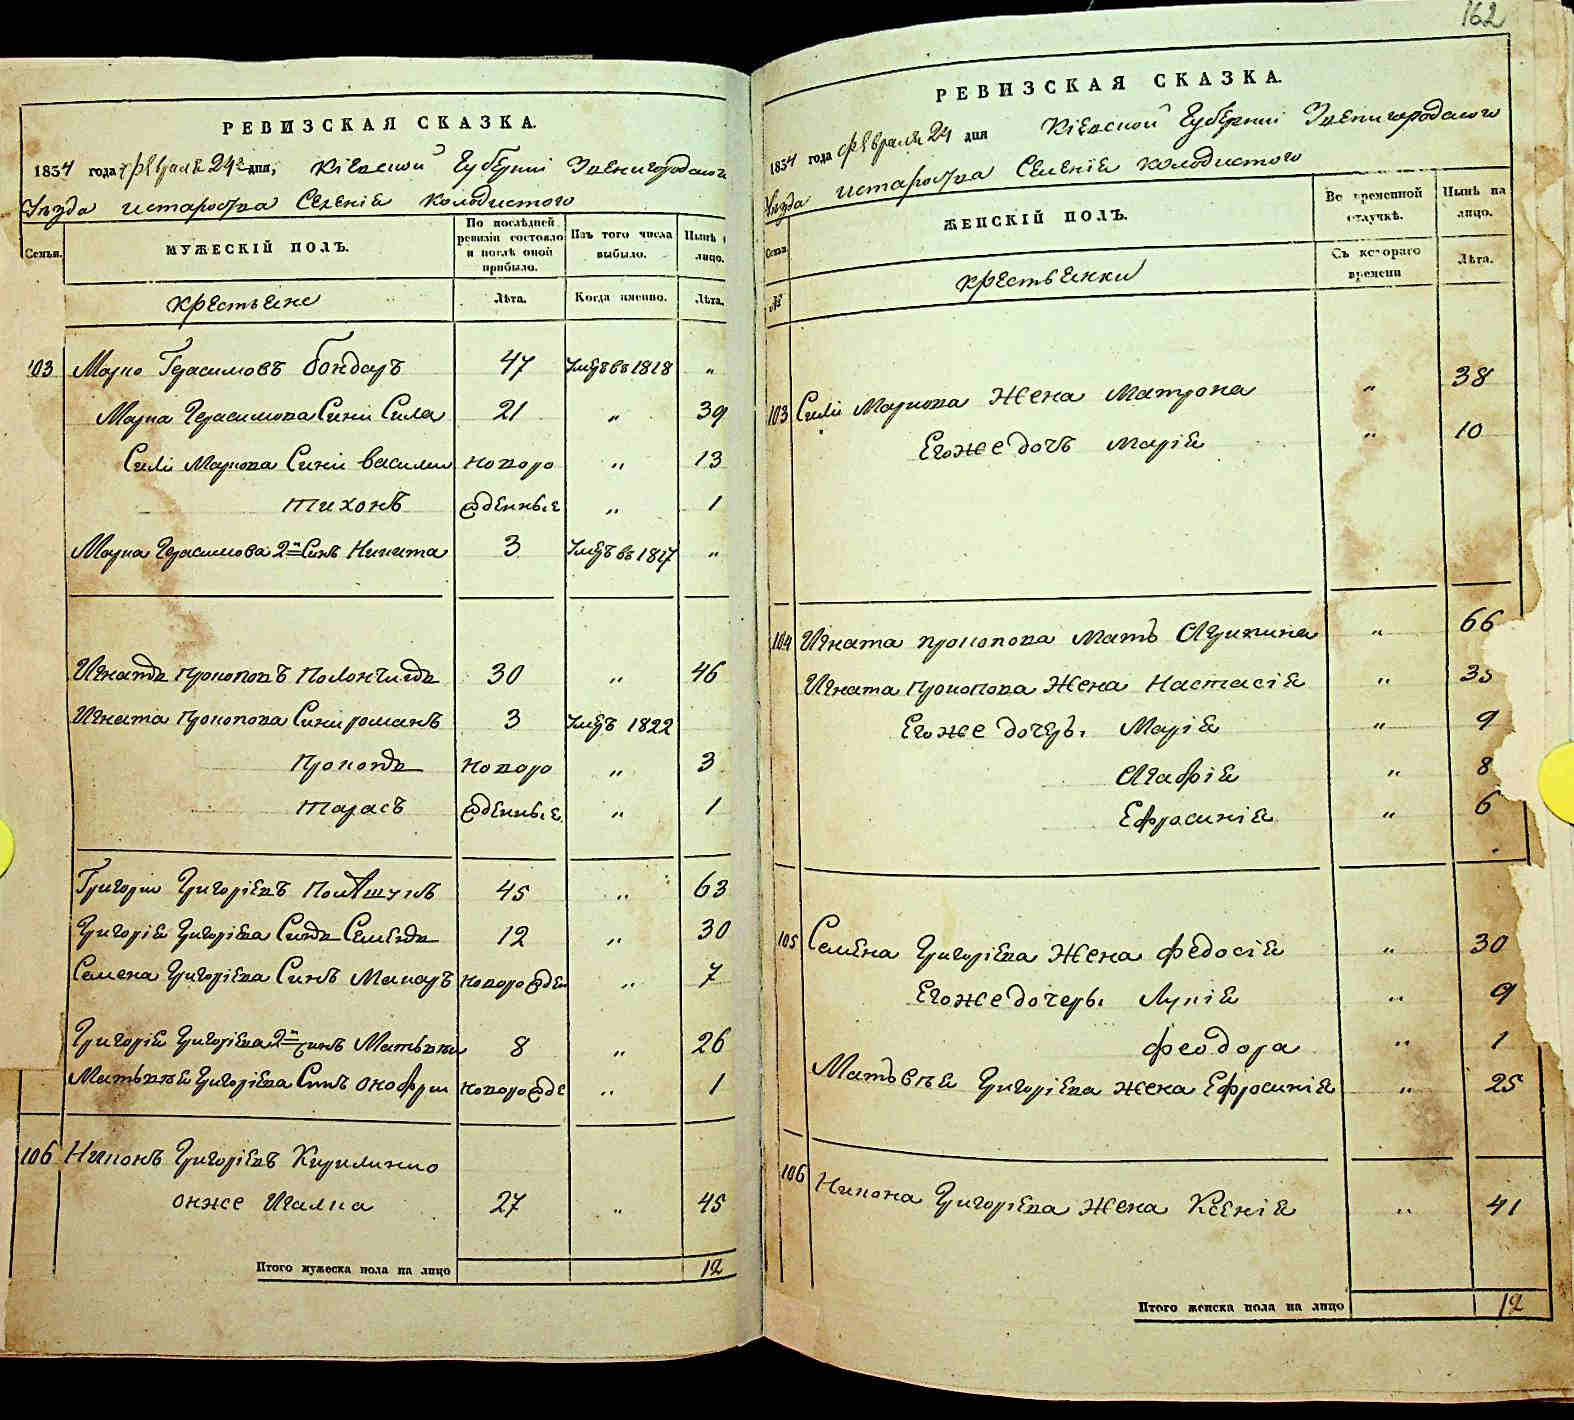 РЕВИЗСКАЯ СКАЗКА.
1834 года февраля 24го дня, Кіевской Губерніи Звенигородского
Уѣзда истароства Селеніе Колодистого
Семьи.
МУЖЕСКІЙ ПОЛЪ.
По послѣдней ревизіи состояло и послѣ оной прибыло.
Изъ того числа выбыло.
Нынѣ лицо.
Крестьяне
Лѣта.
Когда именно.
Лѣта.
103 Марко Герасимовъ Бондарь 47 Умеръ въ 1818 „
Марка Герасимова Синъ Сила 21 „ 39
Силы Маркова Синъ Василий новоро 13
Тихонъ жденные „ 1
Марка Герасимова 2й Синъ Никита 3 Умеръ въ 1817 „
Игнатъ Прокоповъ 30 „ 46
Игната Прокопова Синъ Романъ 3 Умеръ 1822
Прокопъ новоро „ 3
Тарасъ жденные „ 1
Григорий Григоріевъ 45 „ 63
Григорія Григоріева Синъ Семенъ 12 „ 30
Семена Григоріева Синъ Макаръ новорожден „ 7
Григорія Григоріева 2й Синъ Матьвѣй 8 „ 26
Матьвѣя Григоріева Синъ Онофрій новорожде „ 1
106 Никонъ Григоріевъ Кириленко
онже Игалка 27 „ 45
Итого мужеска пола на лицо 12
162
РЕВИЗСКАЯ СКАЗКА.
1834 года февраля 24 дня Кіевской Губерніи Звенигородского
Уѣзда истароства Селеніе Колодистого
Семьи.
ЖЕНСКІЙ ПОЛЪ.
Во временной отлучкѣ.
Нынѣ на лицо.
№
Крестьянки
Съ котораго времени
Лѣта.
103 Силы Маркова Жена Матрона „ 38
Егоже дочь Марія „ 10
104 Игната Прокопова Мать Агрипина „ 66
Игната Прокопова Жена Настасія „ 35
Егоже дочерь. Марія „ 9
Агафія „ 8
Ефросинія „ 6
105 Семена Григоріева Жена Федосія „ 30
Егоже дочерь. Лукія „ 9
Феодора „ 1
Матьвѣя Григоріева Жена Ефросинія „ 25
106 Никона Григоріева Жена Ксенія „ 41
Итого женска пола на лицо 12